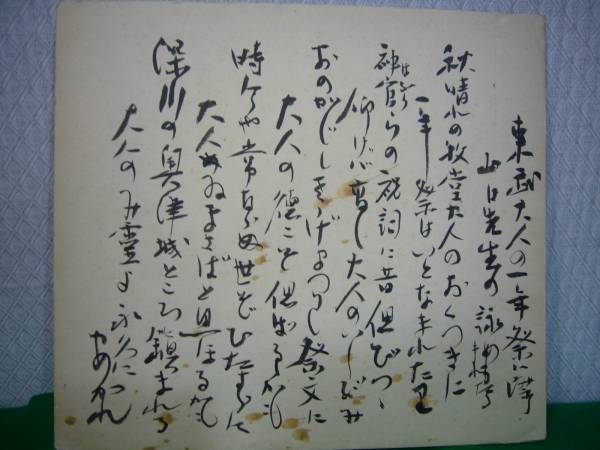 東武大人の一年祭に詳
山口先生の詠める
秋晴れの教堂大人のおくつきに
一年祭はいとなまれたり
神官らの祝詞に昔偲びつゝ
仰げば高し大人のいしぶみ
おのがじしさゝげまつりし祭文に
大人の徳こそ偲ばるるかも
時々や常ならぬ世ぞひたすらに
大人いまさばと思ほゆるかも
深川の奥津城ところ鎮まれる
大人のみ霊よ永久に
あかれ